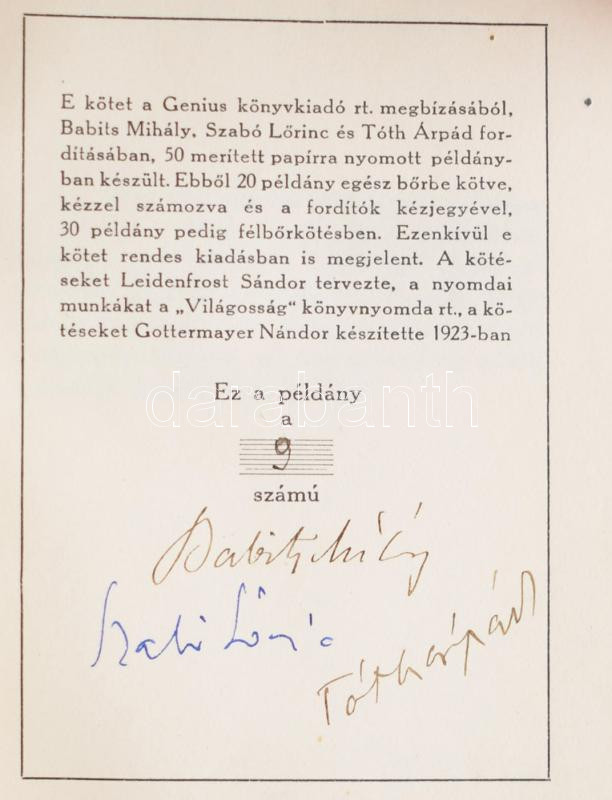 E kötet a Genius könyvkiadó rt. megbízásából,
Babits Mihály, Szabó Lőrinc és Tóth Árpád for-
dításában, 50 merített papírra nyomott példány-
ban készült. Ebből 20 példány egész bőrbe kötve,
kézzel számozva és a fordítók kézjegyével,
30 példány pedig félbőrkötésben. Ezenkívül e
kötet rendes kiadásban is megjelent. A köté-
seket Leidenfrost Sándor tervezte, a nyomdai
munkákat a „Világosság“ könyvnyomda rt., a kö-
téseket Gottermayer Nándor készítette 1923-ban
Ez a példány
darabanth
a
9
számú
Babits Mihály
Szabó Lőrinc
Tóth Árpád